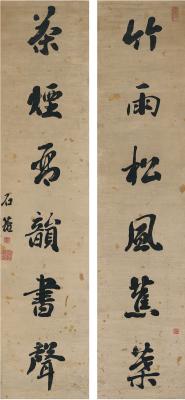 竹雨松風蕉葉
茶煙琴韻書聲
石菴